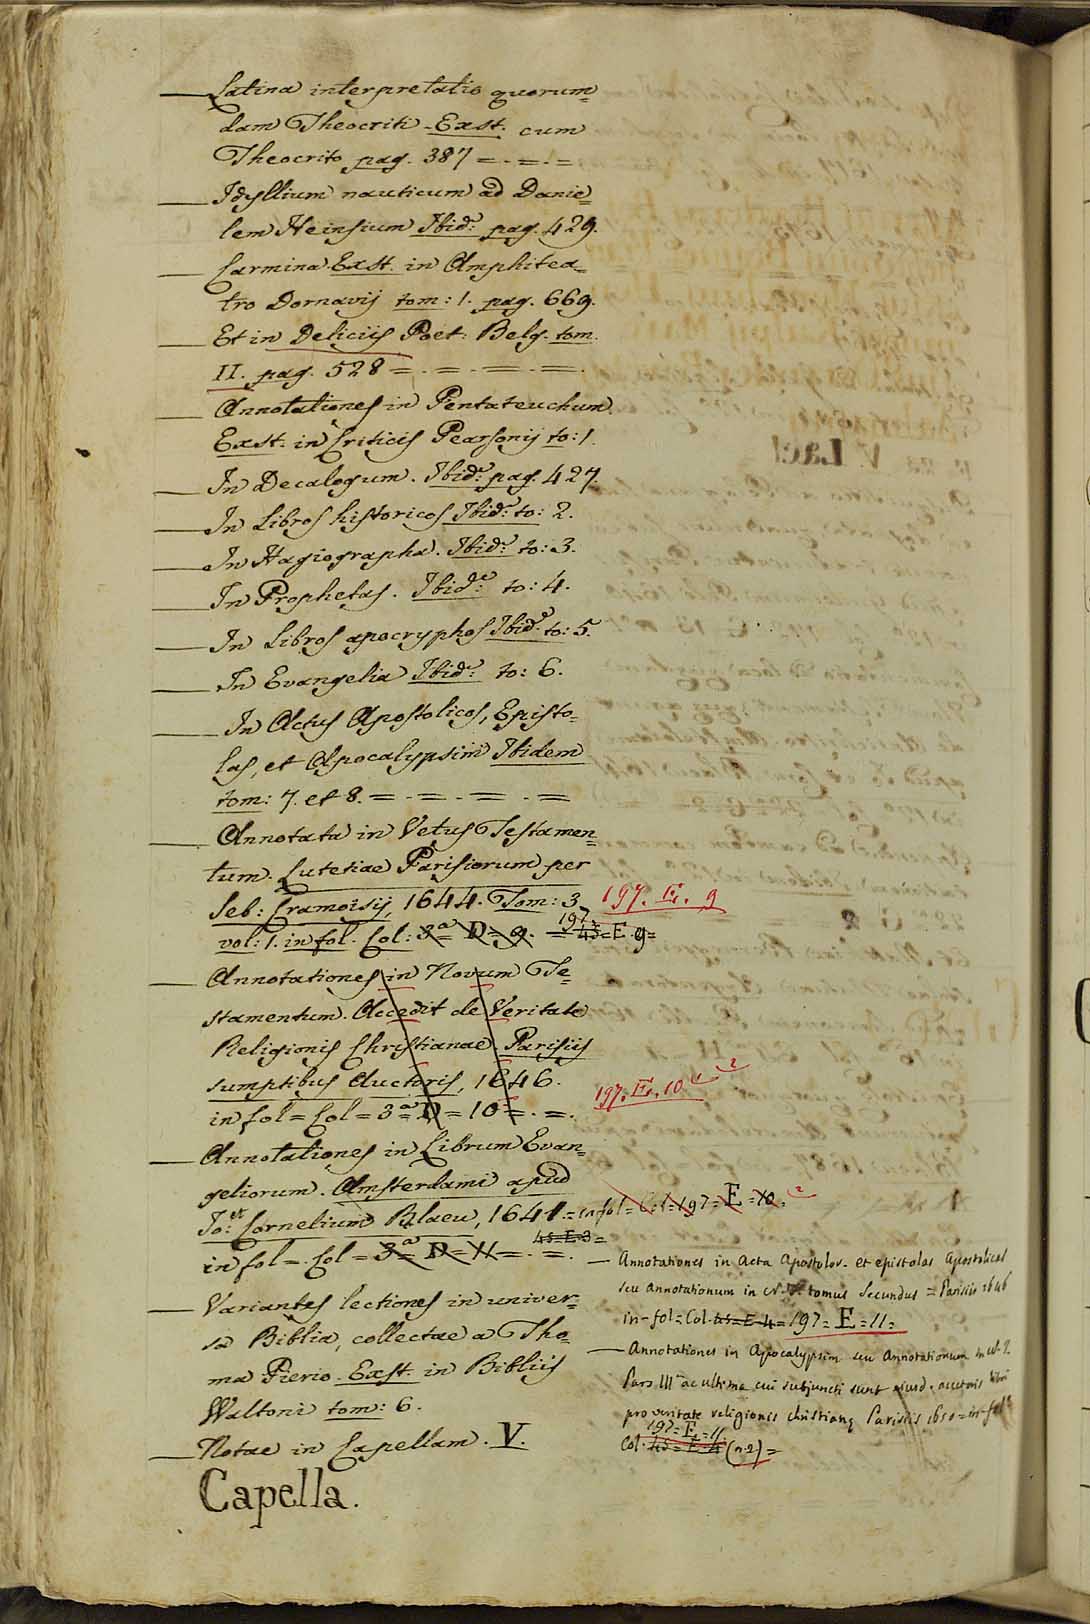 — Latina interpretatio quorum=
dam Theocriti - Exst. cum
Theocrito pag. 387 = . = . =
— Idyllium nauticum ad Danie=
lem Heinsium Ibid: pag. 429.
— Carmina Exst. in Amphitea=
tro Dornavij tom: 1. pag. 669.
— Et in Deliciis Poet: Belg. tom.
II. pag. 528 = . = . = . =.
— Annotationes in Pentateuchum.
Exst. in Criticis Pearsonij to: 1.
— In Decalogum. Ibid: pag. 427.
— In Libros historicos Ibid: to: 2.
— In Hagiographa. Ibid: to: 3.
— In Prophetas. Ibid: to: 4.
— In Libros apocryphos Ibid: to: 5.
— In Evangelia Ibid: to: 6.
— In Actus Apostolicos, Episto=
las, et Apocalypsim Ibidem
tom: 7. et 8. = . = . = . =
— Annotata in Vetus Testamen=
tum. Lutetiae Parisiorum per
Seb: Cramoisij, 1644. Tom: 3
197. E. 9
vol: 1. in fol. Col: 3a= D=9. = 45=E.9=
197.
— Annotationes in Novum Te=
stamentum. Accedit de Veritate
Religionis Christianae. Parisiis
sumptibus Auctoris, 1646.
197. E. 10
in fol = Col = 3a= D = 10 = . = .
— Annotationes in Librum Evan=
geliorum. Amsterdami apud
Jo: Cornelium Blaeu, 1641. = in fol = Col = 197 = E = 10. 2
45=E.3=
in fol = . Col = 3a= D = 11 = . = .
— Variantes lectiones in univer=
sa Biblia, collectae a Tho=
ma Pierio. Exst. in Bibliis
Waltoni tom: 6.
— Notae in Capellam. V.
Capella.
— Annotationes in Acta Apostolor. et epistolas Apostolicas
seu annotationum in N.T. tomus secundus = Parisiis 1646
in-fol = Col. 45=E.4= 197 = E = 11 =
— Annotationes in Apocalypsim seu Annotationum in
Pars III ac ultima cui subjuncti sunt ejusd. auctoris libri
pro veritate religionis christianę Parisiis 1650 = in-fol
197 = E = 11.
Col. 45 = E. 4 (n. 2) =
V. Lac